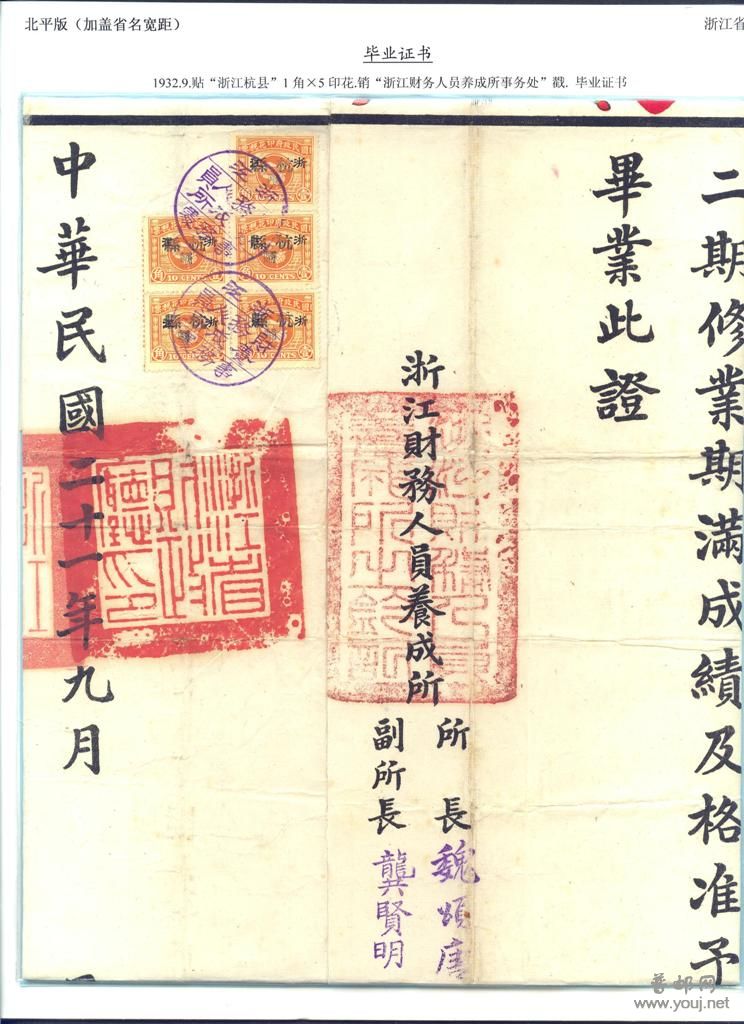 北平版（加盖省名宽距）
浙江省
毕业证书
1932.9.贴“浙江杭县”1角×5印花.销“浙江财务人员养成所事务处”戳. 毕业证书
二期修業期滿成績及格准予
畢業此證
浙江財務人員養成所
所長魏頌唐
副所長龔賢明
中華民國二十一年九月
國民政府印花稅票
浙杭縣
壹角
10 CENTS
浙江省財政廳印
普邮网
www.youj.net